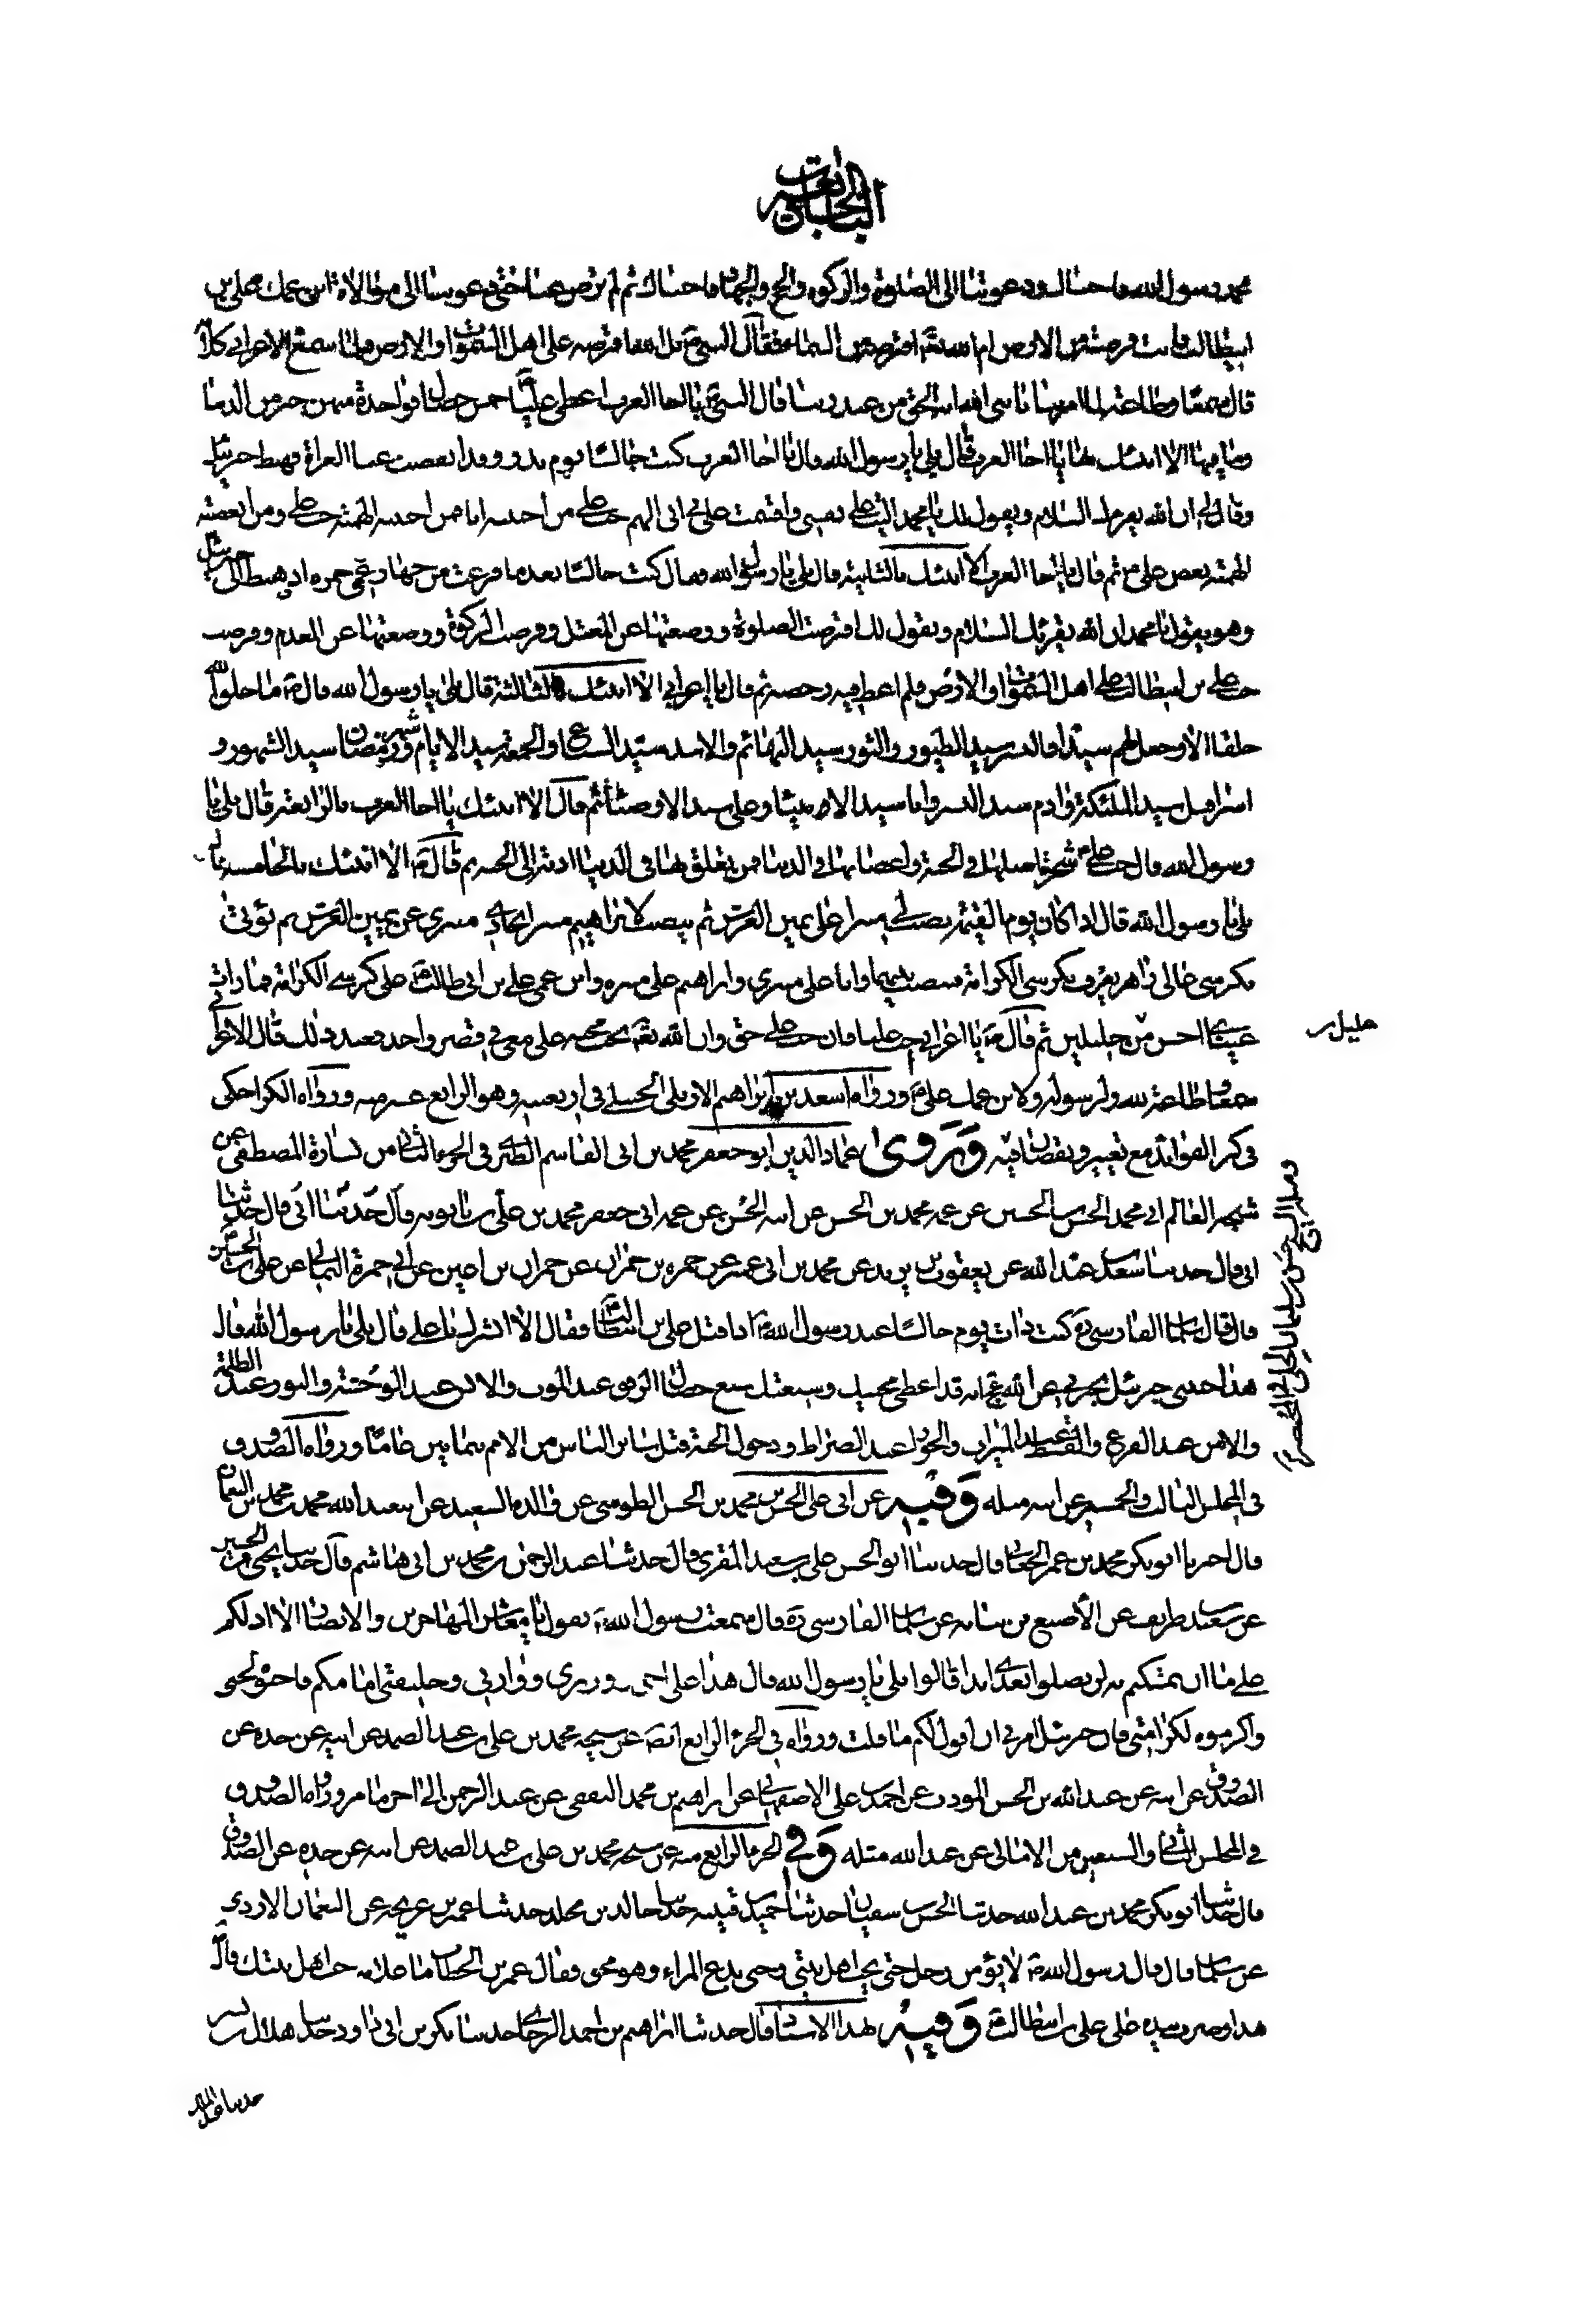 الباب الرابع
محمد رسول الله فاجبناك ودعوتنا الى الصلوة والزكوة والحج والجهاد فاجبناك ثم لم ترض عنا حتى دعوتنا الى موالاة ابن عمك على بن
ابيطالب فانت فرضته من الارض ام الله تعالى افترضه من السماء فقال النبي ص بل الله افترضه على اهل السموات والارض فلما سمع الاعرابي كلامه
قال سمعا وطاعة لما امرتنا يا نبي الله انه الحق من عند ربنا قال النبي ص يا اخا العرب اعطى على خمس خصال فواحدة منهن خير من الدنيا
وما فيها الا انبئك بها يا اخا العرب قال بلى يا رسول الله قال يا اخا العرب كنت جالسا يوم بدر وقد انقضت عنا الغزاة فهبط جبرئيل
وقال لي ان الله يقرئك السلام ويقول لك يا محمد اليت على نفسي واقسمت على اني الهم حب علي من احبه انا فمن احببته الهمته حب علي ومن ابغضته
الهمته بغض علي ثم قال يا اخا العرب الا انبئك بالثانية قال بلى يا رسول الله فقال كنت جالسا بعد ما فرغت من جهاز عمي حمزه اذ هبط الى جبرئيل
وهو يقول يا محمد ان الله يقرئك السلام ويقول لك افترضت الصلوة ووضعتها عن المعتل وفرضت الزكوة ووضعتها عن المعدم وفرضت
حب علي بن ابيطالب على اهل السموات والارض فلم اعط فيه رخصه ثم قال يا اعرابي الا انبئك بالثالثة قال بلى يا رسول الله قال ص ما خلق الله
خلقا الا وجعل لهم سيدا فالنسر سيد الطيور والثور سيد البهائم والاسد سيد السباع والجمعة سيد الايام وشهر رمضان سيد الشهور و
اسرافيل سيد الملئكة وادم سيد البشر وانا سيد الانبياء وعلي سيد الاوصياء ثم قال الا انبئك يا اخا العرب بالرابعة قال بلى يا
رسول الله قال حب علي شجرة اصلها في الجنة واغصانها في الدنيا فمن تعلق بها في الدنيا ادته الى الجنة ثم قال ص الا انبئك بالخامسه قال
بلى يا رسول الله قال اذا كان يوم القيمة ينصب لي منبر على يمين العرش ثم ينصب لابراهيم منبر يحاذي منبري عن يمين العرش ثم يؤتى
بكرسي عالي زاهر يعرف بكرسي الكرامة فينصب بينهما وانا على منبري وابراهيم على منبره وابن عمي علي بن ابي طالب على كرسي الكرامة فما رات
عيناي احسن من حبيب بين خليلين ثم قال ص يا اعرابي حب عليا فان حب علي حق وان الله تعالى يحب محبيه علي معي في قصر واحد فعند ذلك قال الاعرابي
خليلين
سمعا وطاعة لله ولرسوله ولابن عمك علي ورواه اسعد بن ابراهيم الاربلي الحنبلي في اربعينه وهو الرابع عشر منه ورواه الكراجكي
في كنز الفوائد مع تغيير ونقصان فيه وروى عماد الدين ابو جعفر محمد بن ابي القاسم الطبري في الجزء الثامن من بشارة المصطفى عن
شيخه العالم ابي محمد الحسن بن الحسين عن عمه محمد بن الحسن عن ابيه الحسن عن عمه ابي جعفر محمد بن علي بن بابويه قال حدثنا ابي قال حدثنا
ابي قال حدثنا سعد بن عبد الله عن يعقوب بن يزيد عن محمد بن ابي عمير عن حمزه بن حمران عن حمران بن اعين عن ابي حمزة الثمالي عن علي بن الحسين
قال قال سلمان الفارسي ره كنت ذات يوم جالسا عند رسول الله ص اذ اقبل علي بن ابيطالب فقال الا ابشرك يا علي قال بلى يا رسول الله قال
هذا حبيبي جبرئيل يخبرني عن الله عج انه قد اعطى محبيك وشيعتك سبع خصال الرفق عند الموت والانس عند الوحشة والنور عند الظلمة
والامن عند الفزع والقسط عند الميزان والجواز عند الصراط ودخول الجنة قبل سائر الناس من الامم بثمانين عاما ورواه الصدوق
في المجلس الثالث والخمسين عن ابيه مثله وفيه عن ابي علي الحسن بن محمد بن الحسن الطوسي عن والده السعيد عن ابي عبد الله محمد بن محمد بن النعمان
قال اخبرنا ابو بكر محمد بن عمر الجعابي قال حدثنا ابو الحسن علي بن سعيد المقري قال حدثنا عبد الرحمن بن محمد بن ابي هاشم قال حدثنا يحيى بن الحسين
عن سعد بن طريف عن الاصبغ بن نباته عن سلمان الفارسي ره قال سمعت رسول الله ص يقول يا معاشر المهاجرين والانصار الا ادلكم
على ما ان تمسكتم به لن تضلوا بعدي ابدا قالوا بلى يا رسول الله قال هذا علي اخي ووزيري ووارثي وخليفتي امامكم فاحبوه لحبي
واكرموه لكرامتي فان جبرئيل امرني ان اقول لكم ما قلت ورواه في الجزء الرابع ايضا عن شيخه محمد بن علي بن عبد الصمد عن ابيه عن جده عن
الصدوق عن ابيه عن عبد الله بن الحسن المودب عن احمد بن علي الاصفهاني عن ابراهيم بن محمد الثقفي عن عبد الرحمن الى اخر ما مر ورواه الصدوق
في المجلس الثاني والسبعين من الامالي عن عبد الله مثله وفي الجزء الرابع منه عن شيخه محمد بن علي بن عبد الصمد عن ابيه عن جده عن الصدوق
قال حدثنا ابو بكر محمد بن عبد الله حدثنا الحسن بن سفيان حدثنا حميد بن قتيبه حدثنا خالد بن مخلد حدثنا عمير بن عريجه عن النعمان الازدي
عن سلمان قال قال رسول الله ص لا يؤمن رجل حتى يحب اهل بيتي وحتى يدع المراء وهو محق فقال عمر بن الخطاب ما علامه حب اهل بيتك قال
هذا وضرب بيده على علي بن ابيطالب وفيه بهذا الاسناد قال حدثنا ابراهيم بن احمد الرجاي حدثنا بكر بن ابي داود حدثنا هلال بن بشر
حدثنا عبد الملك